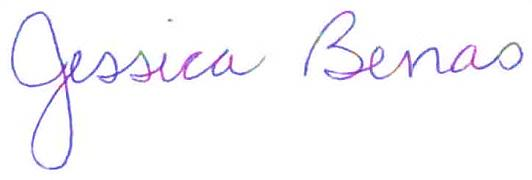 Jessica Benas